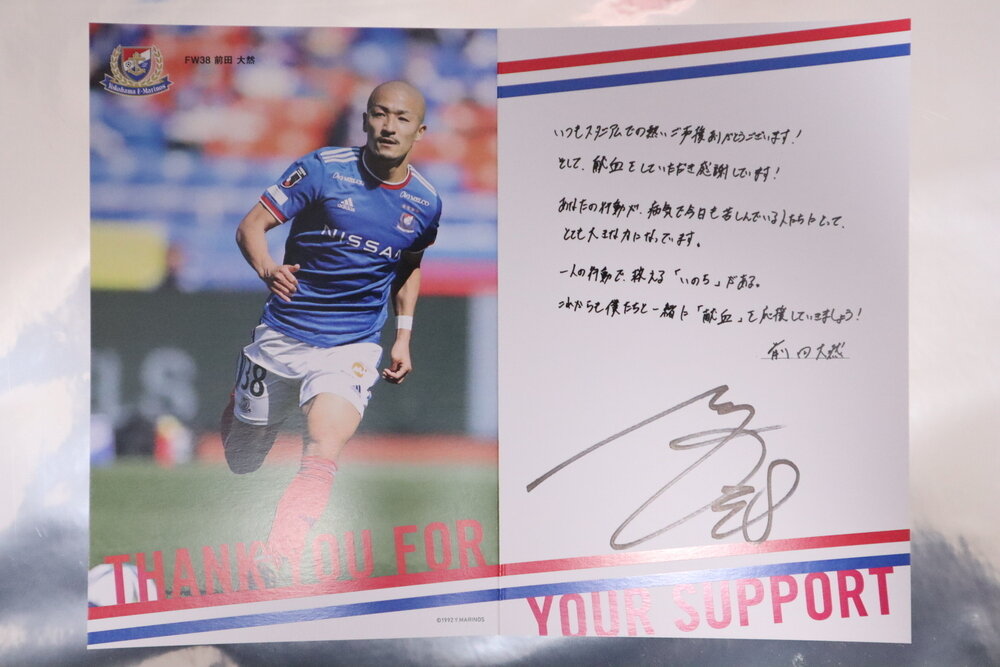 Yokohama F・Marinos
FW38 前田 大然
DAZN
OKAMURA
adidas
NISSAN
38
THANK YOU FOR
©1992 Y.MARINOS
いつもスタジアムでの熱いご声援ありがとうございます!
そして、献血をしていただき感謝しています!
あなたの行動が、病気で今日も苦しんでいる人たちにとって、
とても大きな力になっています。
一人の行動で、救える「いのち」がある。
これからも僕たちと一緒に「献血」を応援していきましょう!
前田大然
38
YOUR SUPPORT